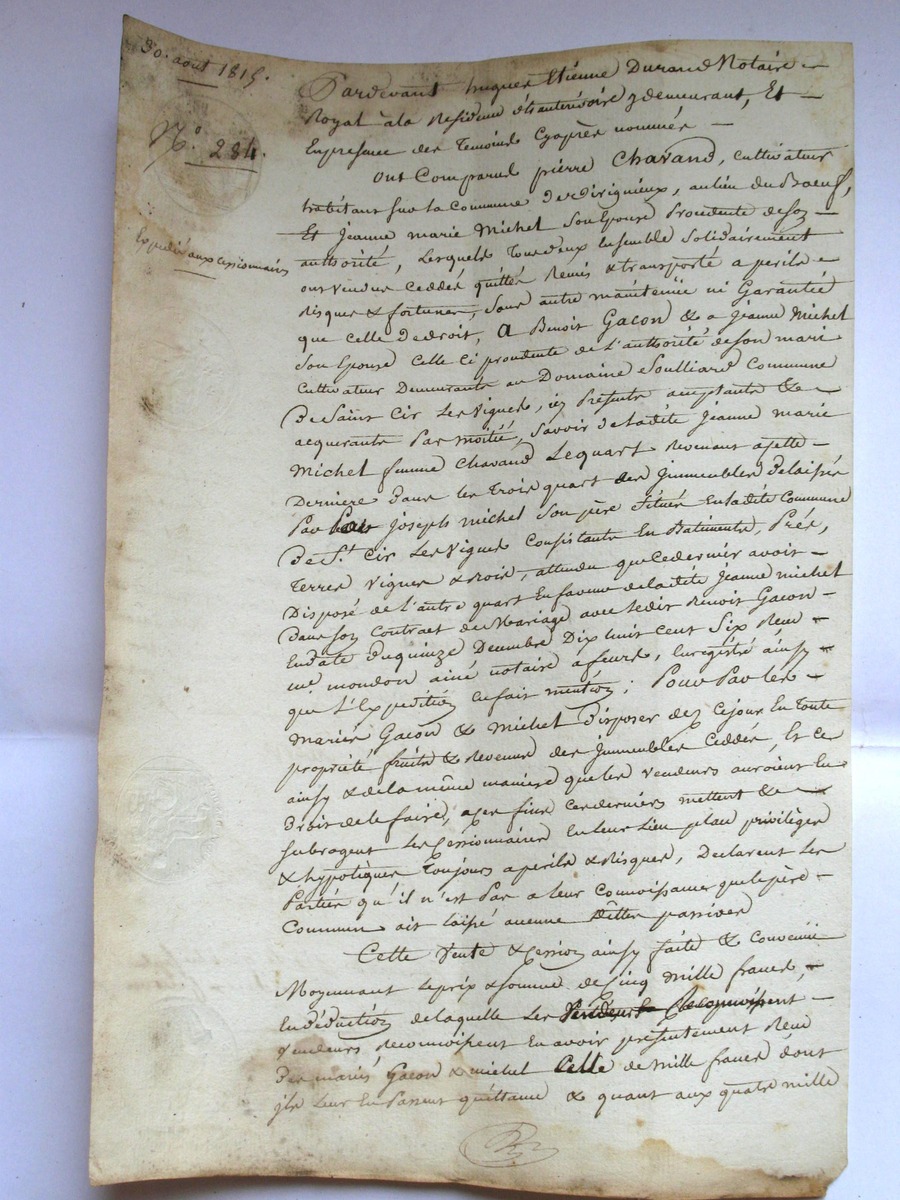 30. aout 1815.
N.o 284.
Expedié aux cessionnaires
Pardevant hugues Etienne Durand Notaire
Royal à la Residence de ydemeurant, Et
En presence des Temoins Cyaprès nommés
Ont Comparus pierre Chavand, cultivateur
habitant sur la Commune de au lieu du Boeuf,
Et Jeanne marie Michel Son Epouse Procedente de Soy
authorité, Lesquels Tous deux Ensemble Solidairement
ont vendus Ceddés quittés Remis & transporté a perils
Risques & fortunes, Sans autre maintenüe ni Garantie
que Celle De droit, A Benoit Gacon & a Jeanne Michel
Son Epouse Celle Ci procedente de L'authorité de Son mari
Cultivateur Demeurants au Domaine Soulliard Commune
De Saint Cir Les Vignes, icy Présents acceptants &
acquerants Par moitié, Savoir de ladite Jeanne marie
Michel femme Chavand Le quart Revenant a cette
Derniere Dans les Trois quart des Jmmeubles Delaissés
Par Joseph michel Son père Situés En ladite Commune
De St. Cir Les Vignes Consistants En Batiments, Prés,
Terres Vignes & bois, attendu que Ce dernier avoit
Disposé de L'autre quart En faveur de ladite Jeanne michel
Dans Son Contract de Mariage avec Ledit Benoit Gacon
En date du quinze Decembre Dix huit Cent Six Recu
me mondon ainé notaire a feurs, Enregistré ainsy
que L'Expedition En fait mention; Pour Par Les
mariés Gacon & Michel Disposer dez Cejour En Toute
propriété fruits & Revenus des Jmmeubles Ceddés, Et ce
ainsy & de la même maniere que les Vendeurs auroient Eu
Droit de le faire, a ces fins Ces derniers mettent &
Subrogent Les Cessionnaires En leur Lieu place privilèges
& hypotèques Toujours a perils & Risques, Declarent Les
Parties qu'il n'est Pas a leur Connoissance que le père
Commun ait laissé aucune Dettes passives
Cette Vente & Cession ainsy faite & Convenüe
Moyennant Le prix & Somme de Cinq Mille francs,
En déduction de laquelle Les
Vendeurs Reconnoissent En avoir presentement Recu
Des mariés Gacon & michel Celle de mille francs dont
jls Leur En Passent quittance & quant aux quatre mille